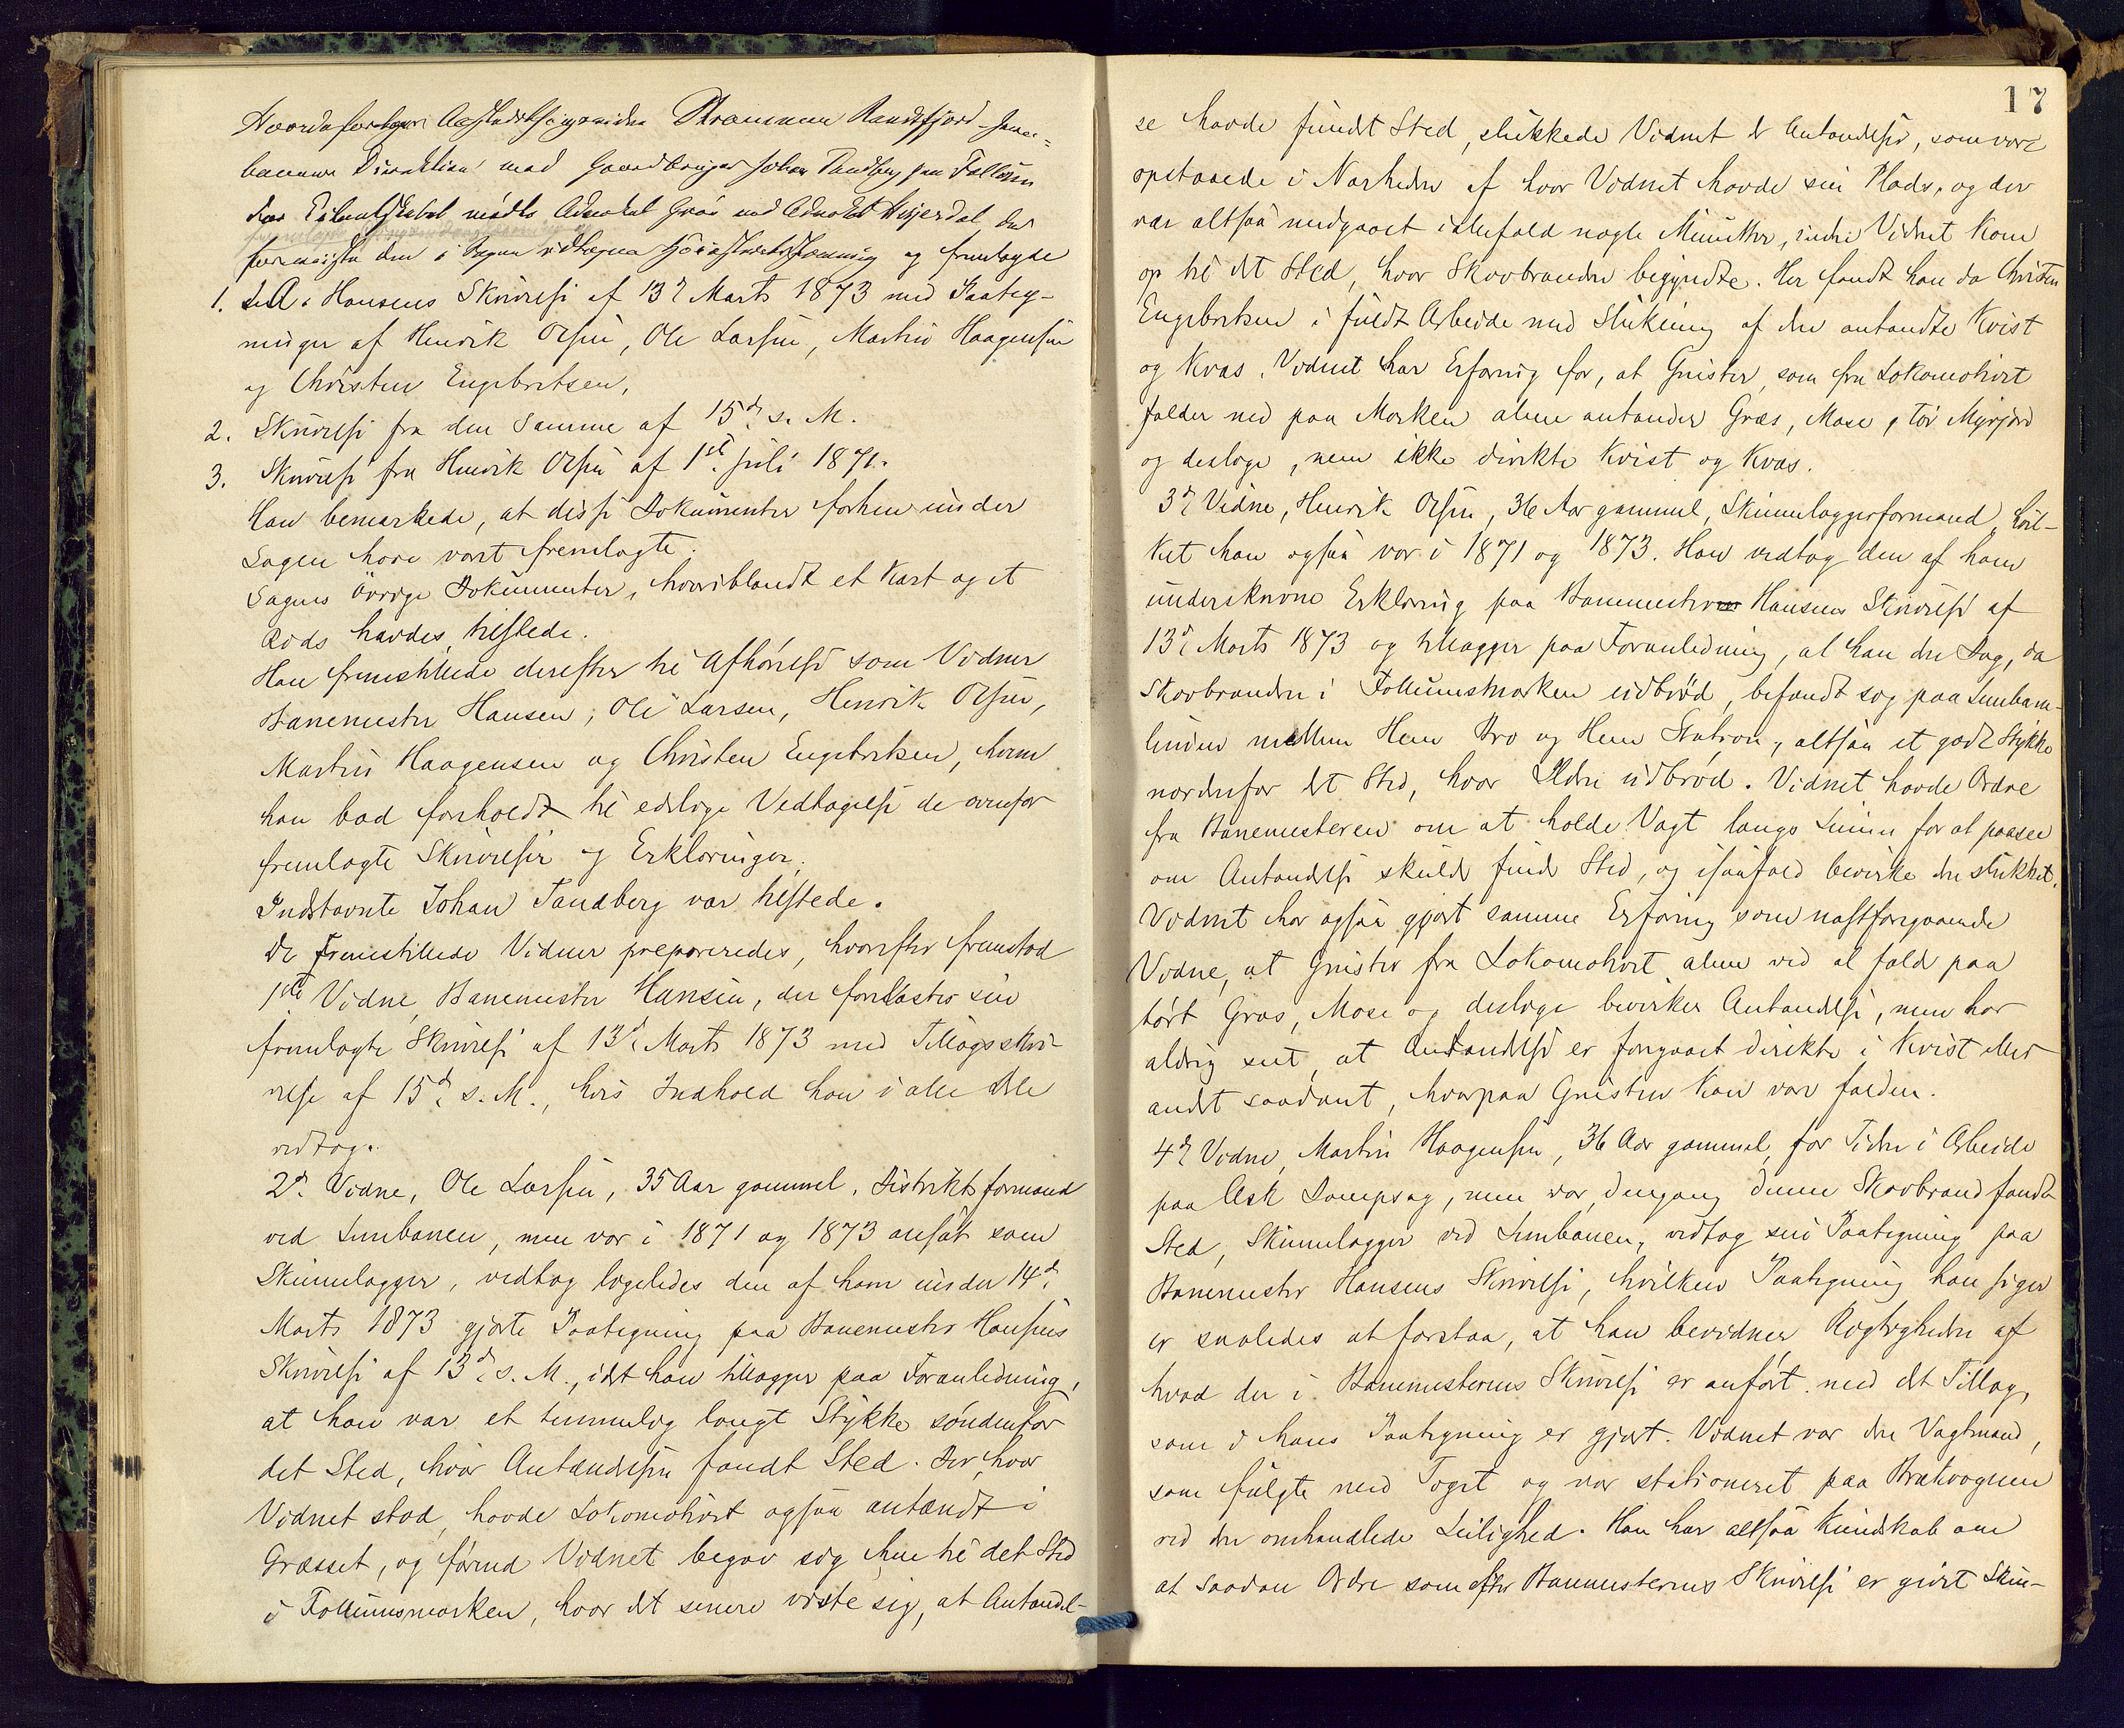 Hvorda foretoges Drammen Randsfjord Jern-
banens Direktion mod Gaardbruger Johan Tandberg paa Follum
For mødte Advokat Graa ved Advokat Hesjerdal, der
den i Sagen udtagne Høiesteretsstevning og fremlagde
1. Hansens Skrivelse af 13d. Marts 1873 med Paateg-
ninger af Henrik Olsen, Ole Larsen, Martin Haagensen
og Christen Engebretsen,
2. Skrivelse fra den Samme af 15d. s. M.
3. Skrivelse fra Henrik Olsen af 1ste Juli 1871.
Han bemærkede, at disse Dokumenter forhen under
Sagen have været fremlagte.
Sagens øvrige Dokumenter, hvoriblandt et Kart og et
Rids havdes tilstede.
Han fremstillede derefter til Afhørelse som Vidner
Banemester Hansen, Ole Larsen, Henrik Olsen,
Martin Haagensen og Christen Engebretsen, hvem
han bad forholdt til edelige Vedtagelse de ovenfor
fremlagte Skrivelser og Erklæringer.
Indstævnte Johan Tandberg var tilstede.
De fremstillede Vidner præpareredes, hvorefter fremstod
1ste Vidne, Banemester Hansen, der forelæstes sin
fremlagte Skrivelse af 13d. Marts 1873 med Tillægsskri-
velse af 15d. s. M., hvis Indhold han i alle Dele
vedtog.
2d. Vidne, Ole Larsen, 35 Aar gammel, Distriktsformand
ved Jernbanen, men var i 1871 og 1873 ansat som
Skinnelægger, vedtog ligeledes den af ham under 14d.
Marts 1873 gjorte Paategning paa Banemester Hansens
Skrivelse af 13d. s. M., idet han tillægger paa Foranledning,
at han var et temmelig langt Stykke søndenfor
det Sted, hvor Antændelsen fandt Sted. Der, hvor
Vidnet stod, havde Lokomotivet ogsaa antændt i
Græsset, og førend Vidnet begav sig hen til det Sted
i Follumsmarken, hvor det senere viste sig, at Antændel-
17
se havde fundet Sted, slukkede Vidnet de Antændelser, som vare
opstaaede i Nærheden af hvor Vidnet havde sin Plads, og der
var altsaa medgaaet ialfald nogle Minutter, inden Vidnet kom
op til det Sted, hvor Skovbranden begyndte. Her fandt han da Christen
Engebretsen i fuldt Arbeide med Slukning af den antændte Kvist
og Kvas. Vidnet har Erfaring for, at Gnister, som fra Lokomotivet
falder ned paa Marken alene antænder Græs, Mose, tør Myrjord
og deslige, men ikke direkte Kvist og Kvas.
3d. Vidne, Henrik Olsen, 36 Aar gammel, Skinnelæggerformand, hvil-
ket han ogsaa var i 1871 og 1873. Han vedtog den af ham
underskrevne Erklæring paa Banemester Hansens Skrivelse af
13d. Marts 1873 og tillægger paa Foranledning, at han den Dag, da
Skovbranden i Follumsmarken udbrød, befandt sig paa Jernbane-
linien mellem Hens Bro og Hens Station, altsaa et godt Stykke
nordenfor det Sted, hvor Ilden udbrød. Vidnet havde Ordre
fra Banemesteren om at holde Vagt langs Linien for at paasee
om Antændelse skulde finde Sted, og isaafald bevirke den slukket.
Vidnet har ogsaa gjort samme Erfaring som næstforegaaende
Vidne, at Gnister fra Lokomotivet alene ved at falde paa
tørt Græs, Mose og deslige bevirker Antændelse, men har
aldrig seet, at Antændelse er foregaaet direkte i Kvist eller
andet saadant, hvorpaa Gnisten kan være falden.
4d. Vidne, Martin Haagensen, 36 Aar gammel, for Tiden i Arbeide
paa Ask Dampsag, men var, dengang denne Skovbrand fandt
Sted, Skinnelægger ved Jernbanen, vedtog sin Paategning paa
Banemester Hansens Skrivelse, hvilken Paategning han siger
er saaledes at forstaa, at han bevidner Rigtigheden af
hvad der i Banemesterens Skrivelse er anført med det Tillæg,
som i hans Paategning er gjort. Vidnet var den Vagtmand,
som fulgte med Toget og var stationeret paa Brækvognen
ved den omhandlede Leilighed. Han har altsaa Kundskab om
at saadan Ordre som efter Banemesterens Skrivelse er givet Skin-